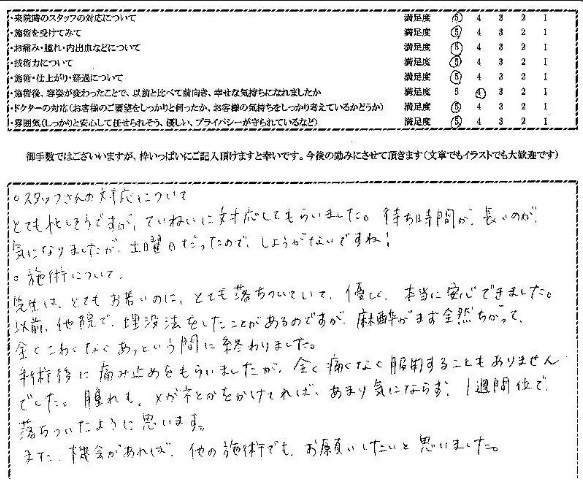 ・来院時のスタッフの対応について 満足度 5 4 3 2 1
・施術を受けてみて 満足度 5 4 3 2 1
・お痛み・腫れ・内出血などについて 満足度 5 4 3 2 1
・技術力について 満足度 5 4 3 2 1
・施術・仕上がり・経過について 満足度 5 4 3 2 1
・施術後、容姿が変わったことで、以前と比べて前向き、幸せな気持ちになれましたか 満足度 5 4 3 2 1
・ドクターの対応(お客様のご要望をしっかりと伺ったか、お客様の気持ちをしっかり考えているかどうか) 満足度 5 4 3 2 1
・雰囲気(しっかりと安心して任せられそう、優しい、プライバシーが守られているなど) 満足度 5 4 3 2 1
御手数ではございいますが、枠いっぱいにご記入頂けますと幸いです。今後の励みにさせて頂きます(文章でもイラストでも大歓迎です)
○スタッフさんの対応について
とても忙しそうですが、ていねいに対応してもらいました。待ち時間が、長いのが、
気になりましたが、土曜日だったので、しょうがないですね!
○施術について、
先生は、とてもお若いのに、とても落ちついていて、優しく、本当に安心できました。
以前、他院で、埋没法をしたことがあるのですが、麻酔がまず全然ちがって、
全くこわくなくあっという間に終わりました。
手術後に痛み止めをもらいましたが、全く痛くなく服用することもありません
でした。腫れも、メガネとかをかけてれば、あまり気にならず、1週間位で、
落ちついたように思います。
また、機会があれば、他の施術でも、お願いしたいと思いました。